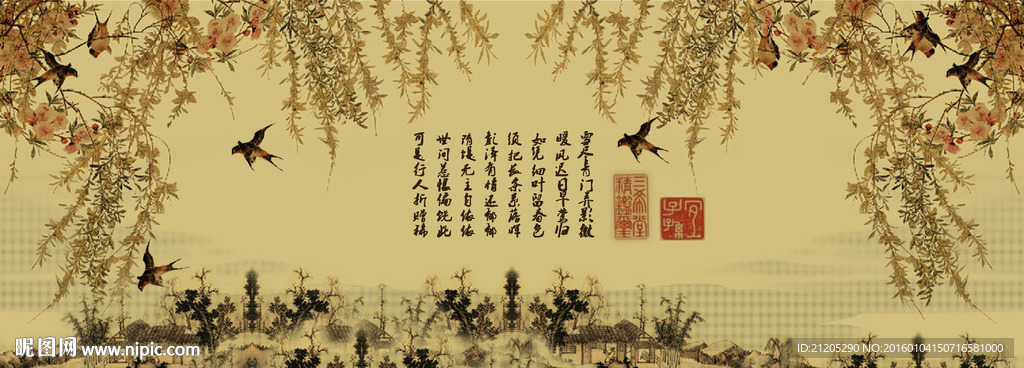 雪尽青门弄影微
暖风迟日早莺归
如凭细叶留春色
须把长条系落晖
彭泽有情还郁郁
隋堤无主自依依
世间惹恨偏饶此
可是行人折赠稀
三希堂
精鉴玺
宜
子孙
昵图网 www.nipic.com
ID:21205290 NO:20160104150716581000